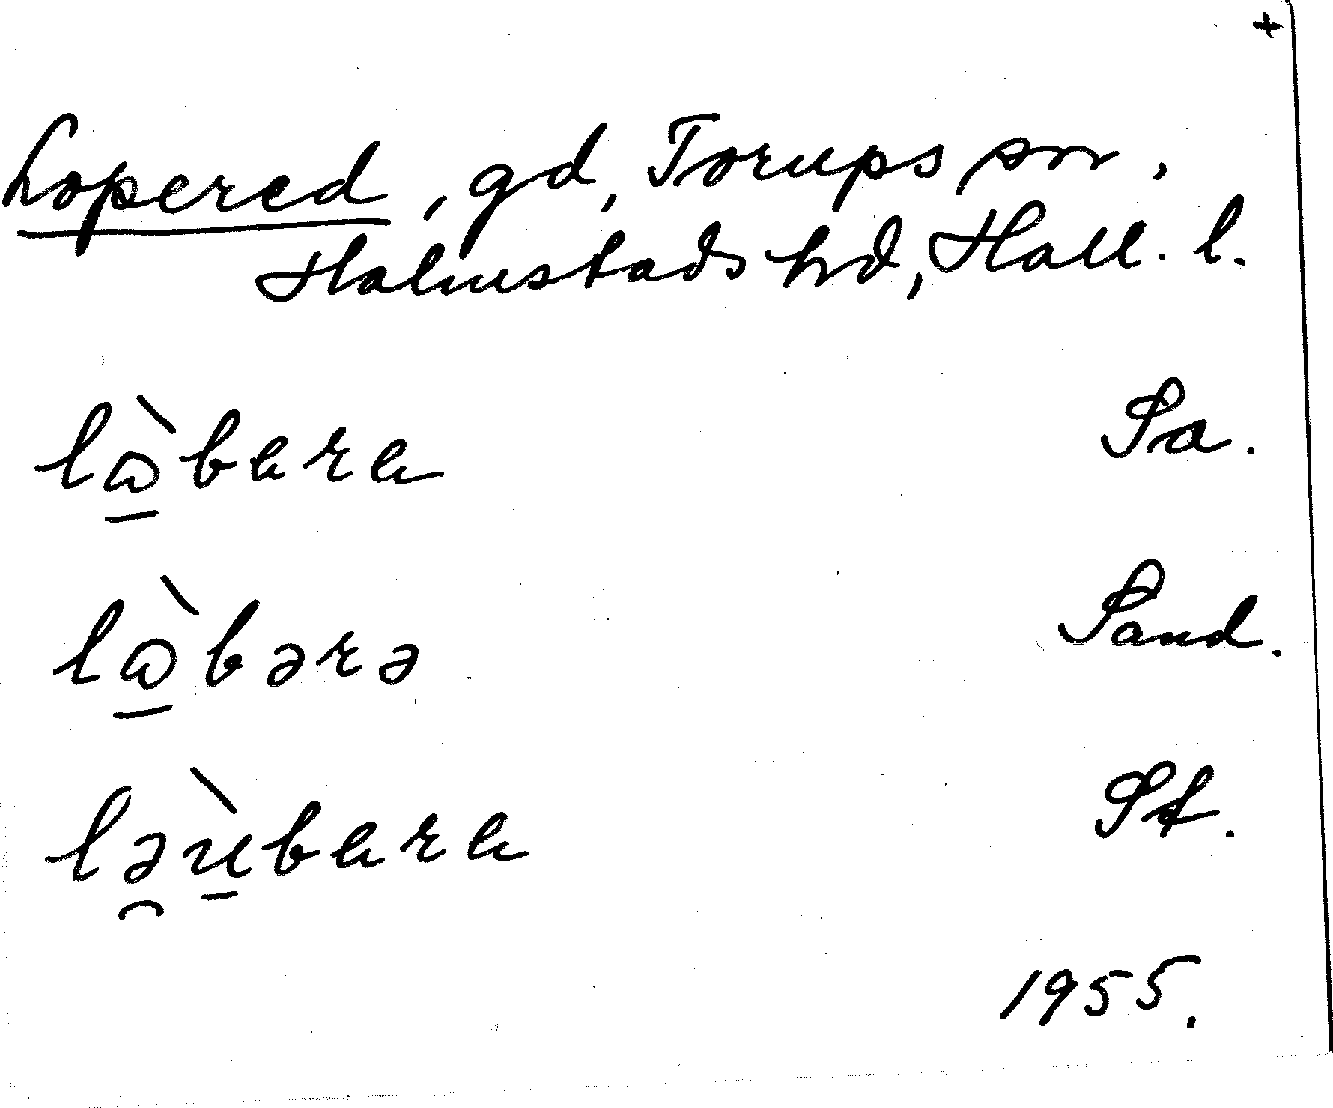 +
Lopered, gd, Torups sn,
Halmstads hd, Hall. l.
lⱺ̠̀bara Sa.
lⱺ̠̀bərə Sand.
lə̯ù̠bara St.
1955.